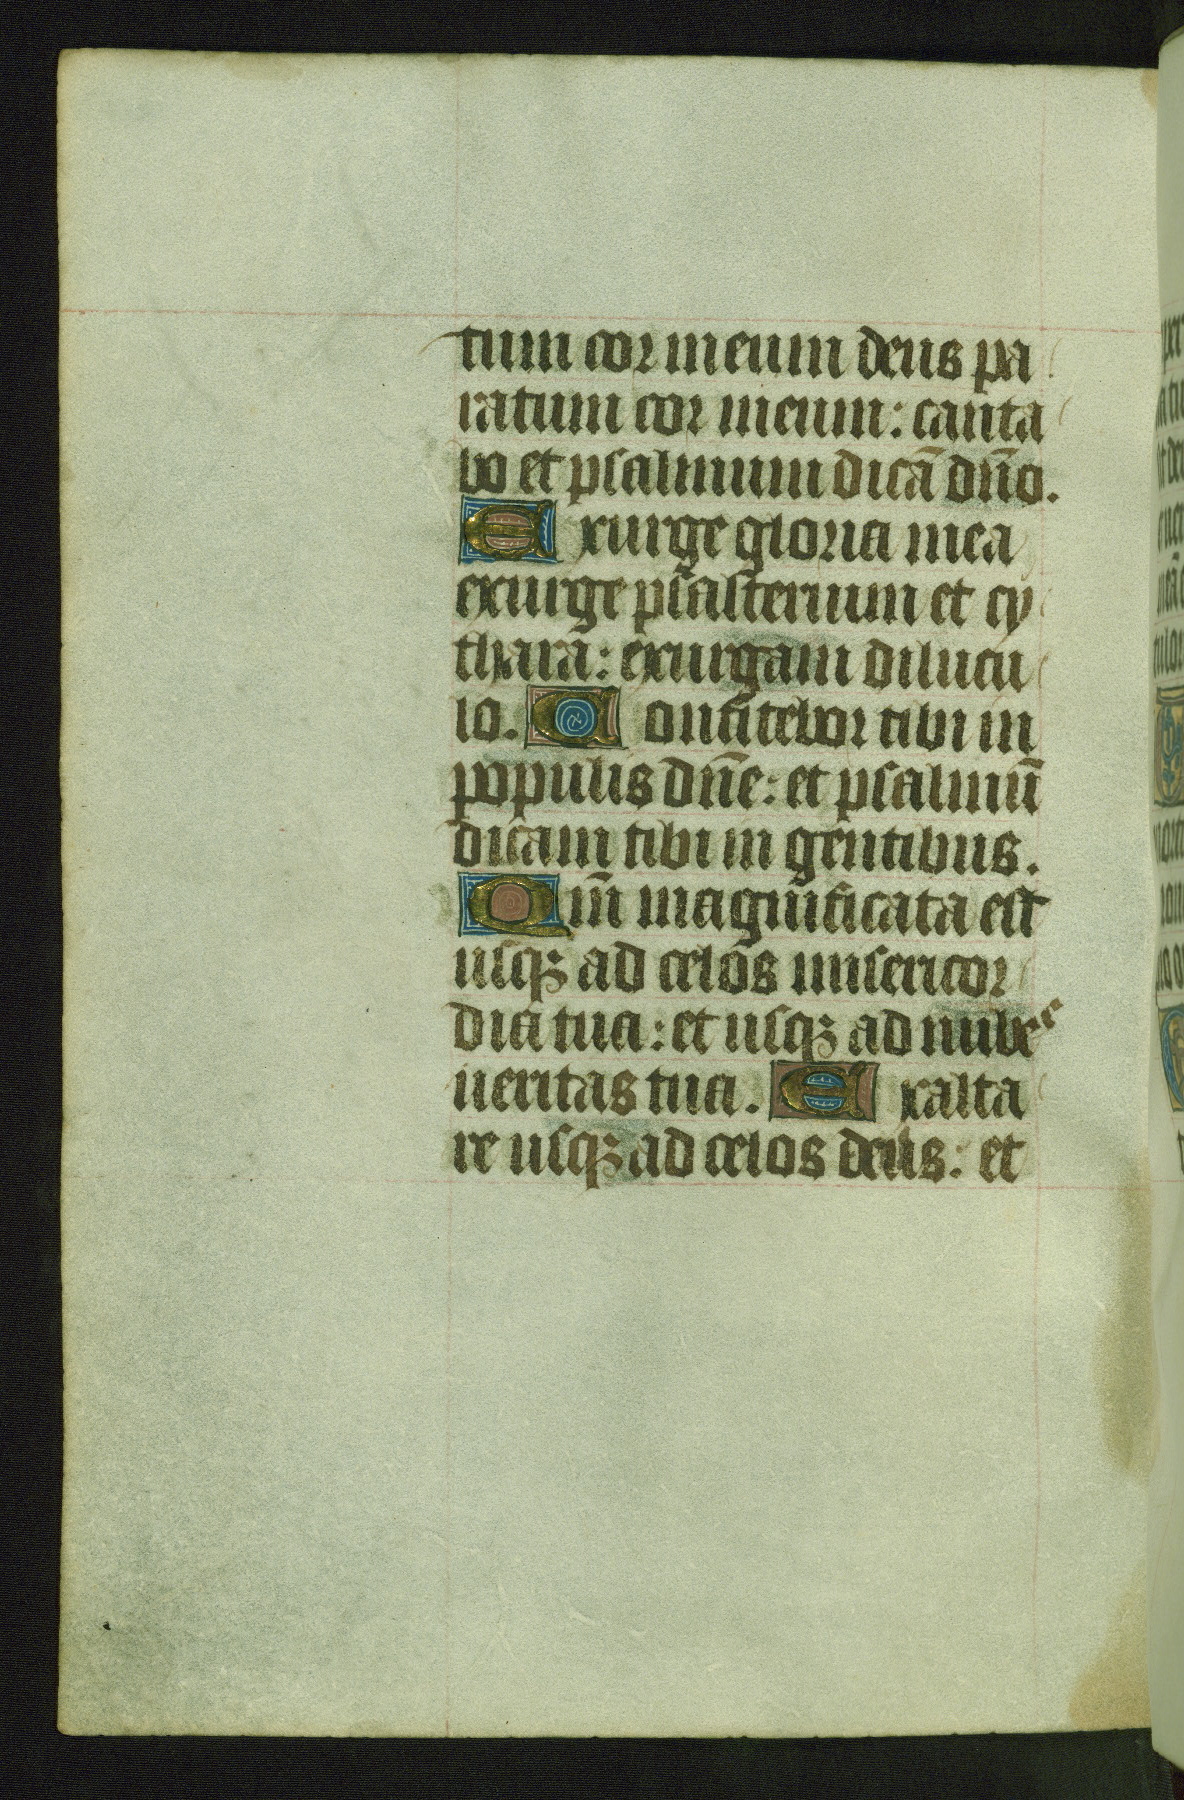 tum cor meum deus pa
ratum cor meum: canta
bo et psalmum dicā dño.
Exurge gloria mea
exurge psalterium et cy
thara: exurgam dilucu
lo. Confitebor tibi in
populis dñe: et psalmū
dicam tibi in gentibus.
Qm̄ magnificata est
usqꝫ ad celos misericor
dia tua: et usqꝫ ad nubes
ueritas tua. Exalta
re usqꝫ ad celos deus: et